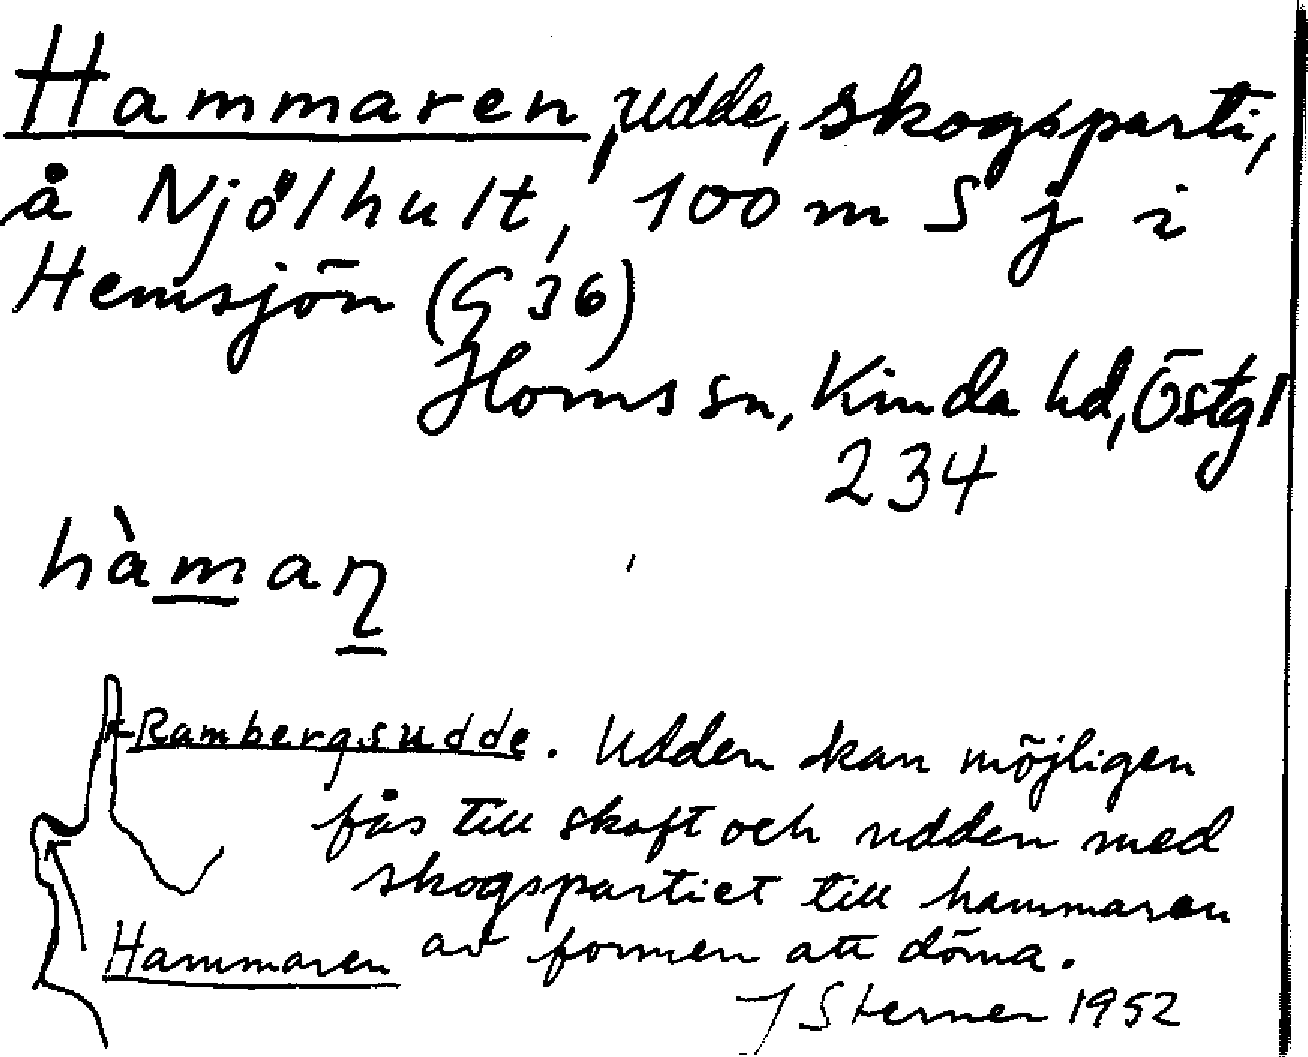 Hammaren, udde, skogsparti,
å Njölhult, 100 m S j i
Hemsjön (G 36)
Horns sn, Kinda hd, Östgl
234
hàmaꞃ
Rambergsudde. Udden kan möjligen
fås till skaft och udden med
skogspartiet till hammaren
Hammaren av formen att döma.
J Sterner 1952